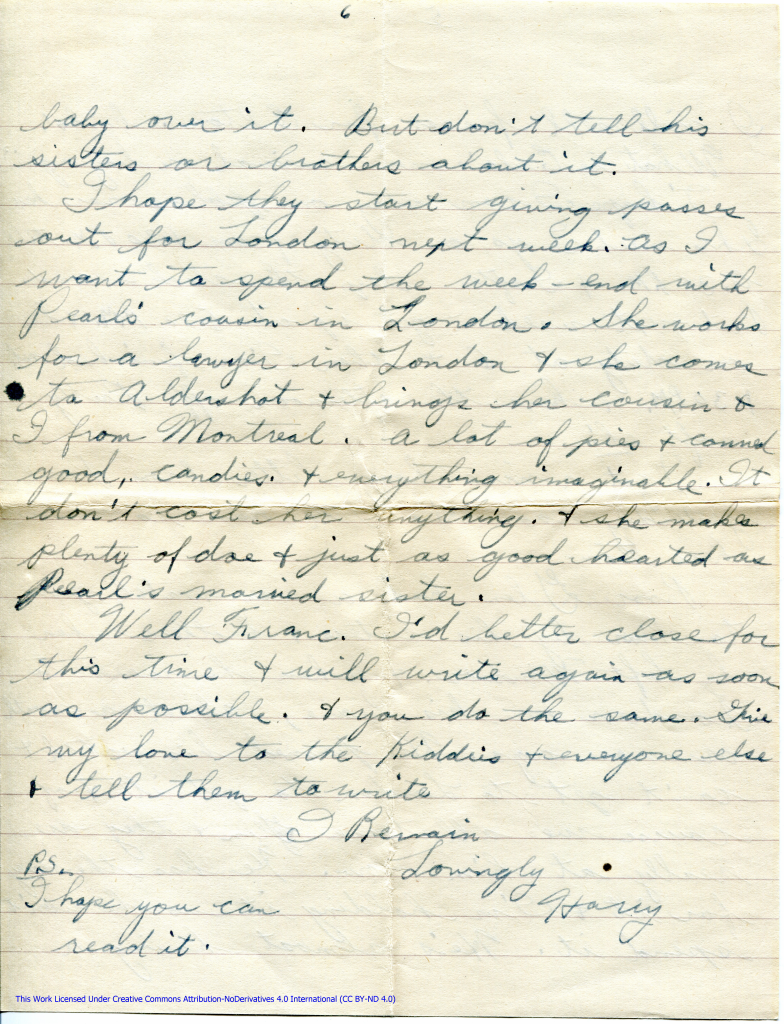 6
baby over it. But don't tell his
sisters or brothers about it.
I hope they start giving passes
out for London next week. As I
want to spend the week-end with
Pearl's cousin in London. She works
for a lawyer in London & she comes
to Aldershot & brings her cousin &
I from Montreal. A lot of pies & canned
good, candies. & everything imaginable. It
don't cost her anything. & she makes
plenty of doe & just as good hearted as
Pearl's married sister.
Well Franc. I'd better close for
this time & will write again as soon
as possible. & you do the same. Give
my love to the Kiddies & everyone else
& tell them to write
I Remain
Lovingly
Harry
P.S.
I hope you can
read it.
This Work Licensed Under Creative Commons Attribution-NoDerivatives 4.0 International (CC BY-ND 4.0)